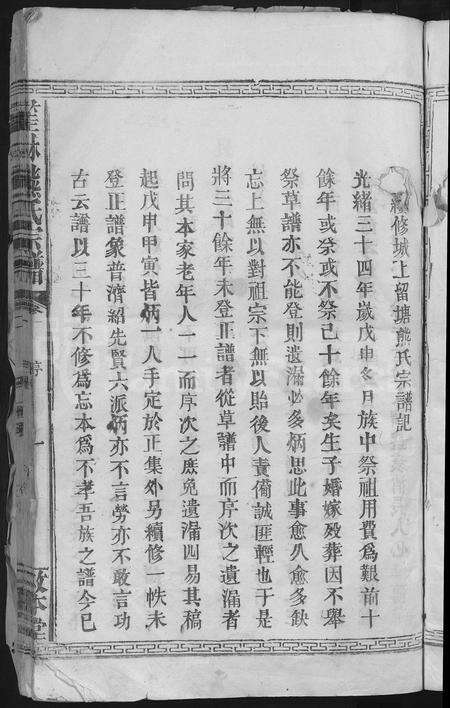 續修城上留塘熊氏宗譜記
光緒三十四年歲戊申冬月族中祭祖用費爲艱前十
餘年或祭或不祭已十餘年矣生子婚嫁歿葬因不舉
祭草譜亦不能登則遺漏必多炳思此事愈久愈多缺
忘上無以對祖宗下無以貽後人責備誠匪輕也于是
將三十餘年未登正譜者從草譜中而序次之遺漏者
問其本家老年人一一而序次之庶免遺漏四易其稿
起戊申甲寅皆炳一人手定於正集外另續修一帙未
登正譜象普濟紹先賢六派炳亦不言勞亦不敢言功
古云譜以三十年不修爲忘本爲不孝吾族之譜今已
熊氏宗譜
卷
序
一
敦本堂